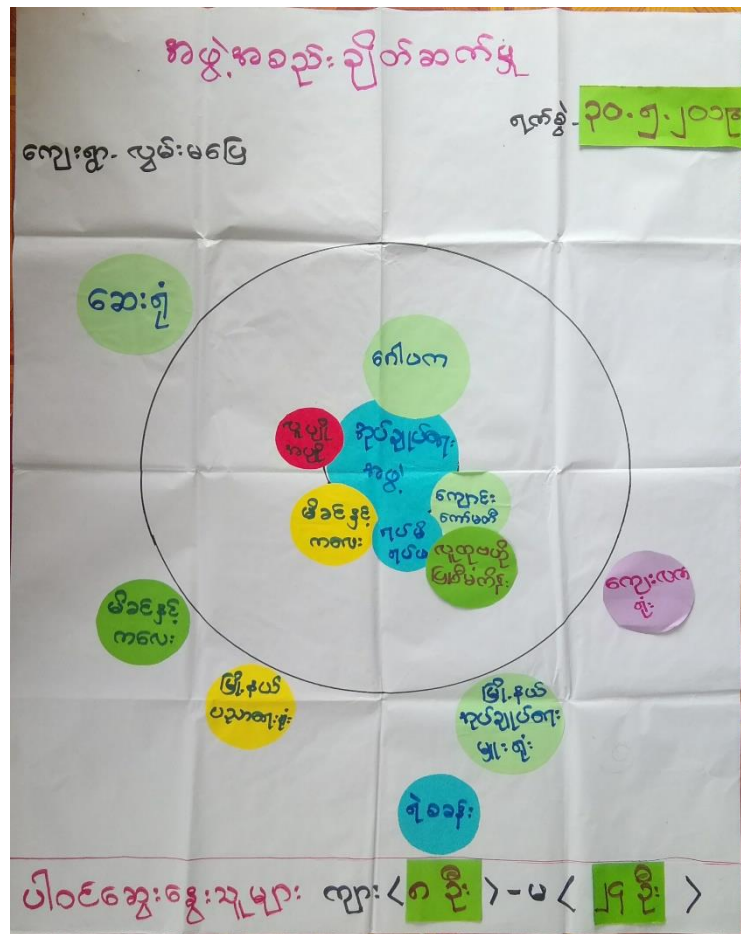 အဖွဲ့အစည်းချိတ်ဆက်မှု
ရက်စွဲ - ၃၀.၅.၂၀၁၉
ကျေးရွာ - လွမ်းမပြေ
ဆေးရုံ
ဂေါပက
လူပျို
အပျို
အုပ်ချုပ်ရေး
အဖွဲ့
မိခင်နှင့်
ကလေး
ရပ်မိ
ရပ်ဖ
ကျောင်း
ကော်မတီ
လူထုဗဟိုပြု
စီမံကိန်း
ကျေးလက်
ရုံး
မိခင်နှင့်
ကလေး
မြို့နယ်
ပညာရေးရုံး
မြို့နယ်
အုပ်ချုပ်ရေး
မှူးရုံး
ရဲစခန်း
ပါဝင်ဆွေးနွေးသူများ ကျား < ၈ ဦး > - မ < ၂၄ ဦး >